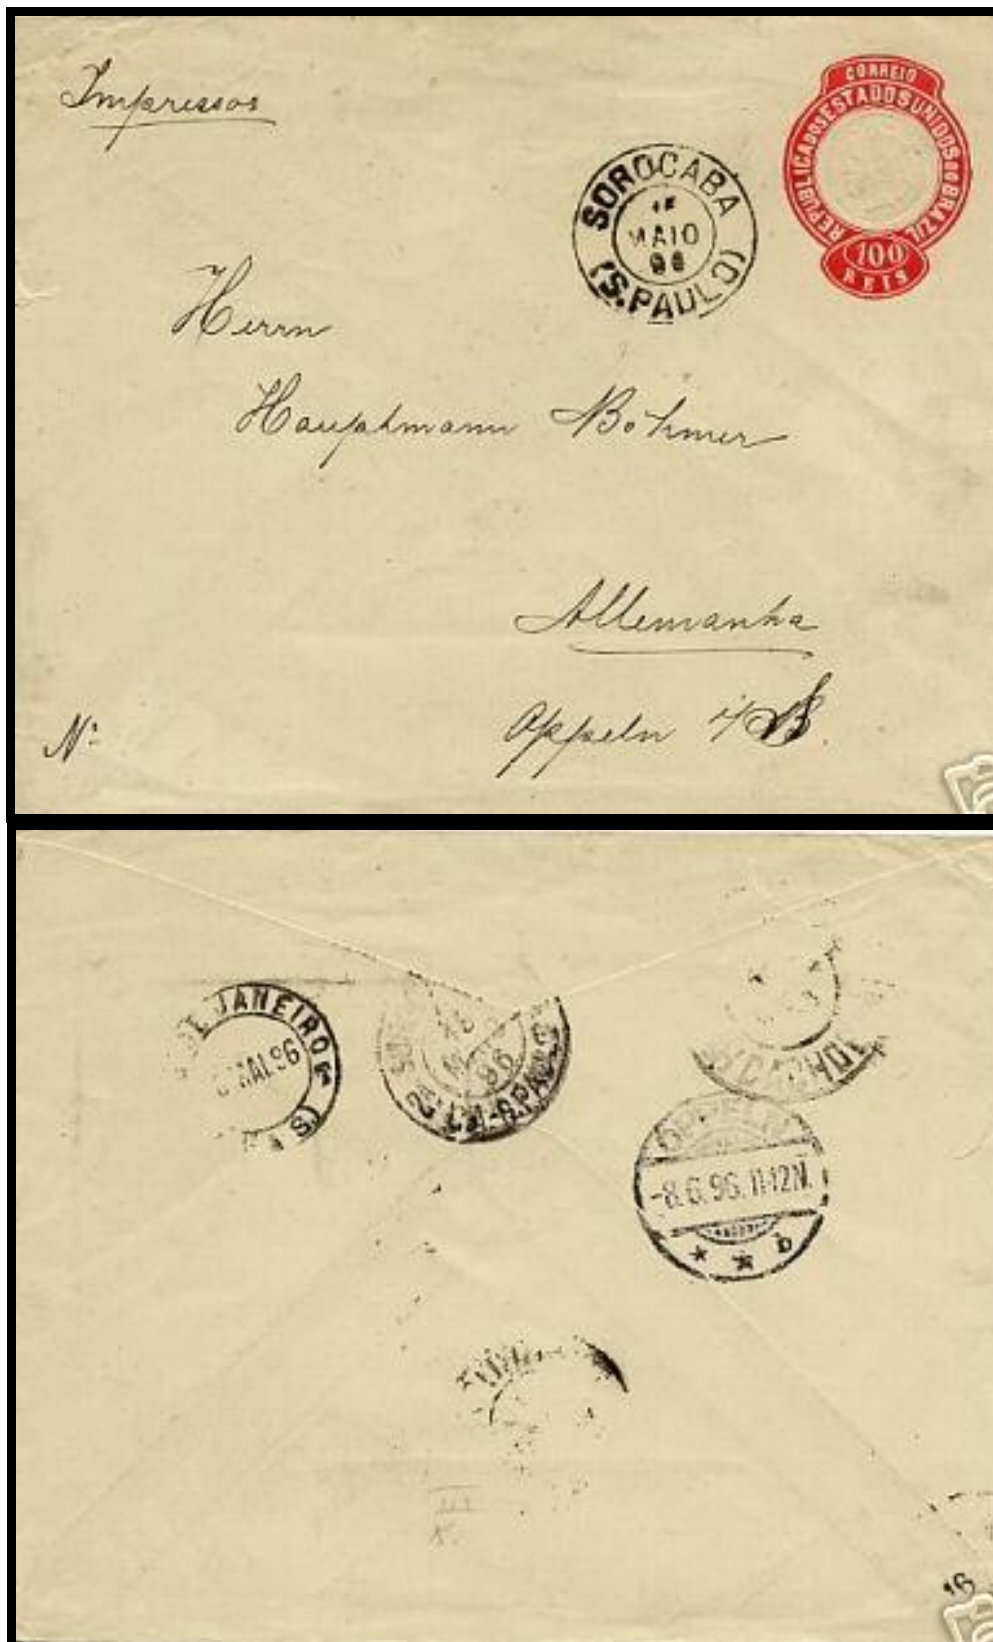 Impressos
CORREIO
REPUBLICA DOS ESTADOS UNIDOS DO BRAZIL
100
REIS
SOROCABA
MAIO
96
(S.PAULO)
Herrn
Hauptmann Böhmer
Allemanha
Oppeln i/S.
Nº
DE JANEIRO
MAI 96
(S
96
S.PAULO
OPPELN
-8.6.96. 11-12N.
* * b
16